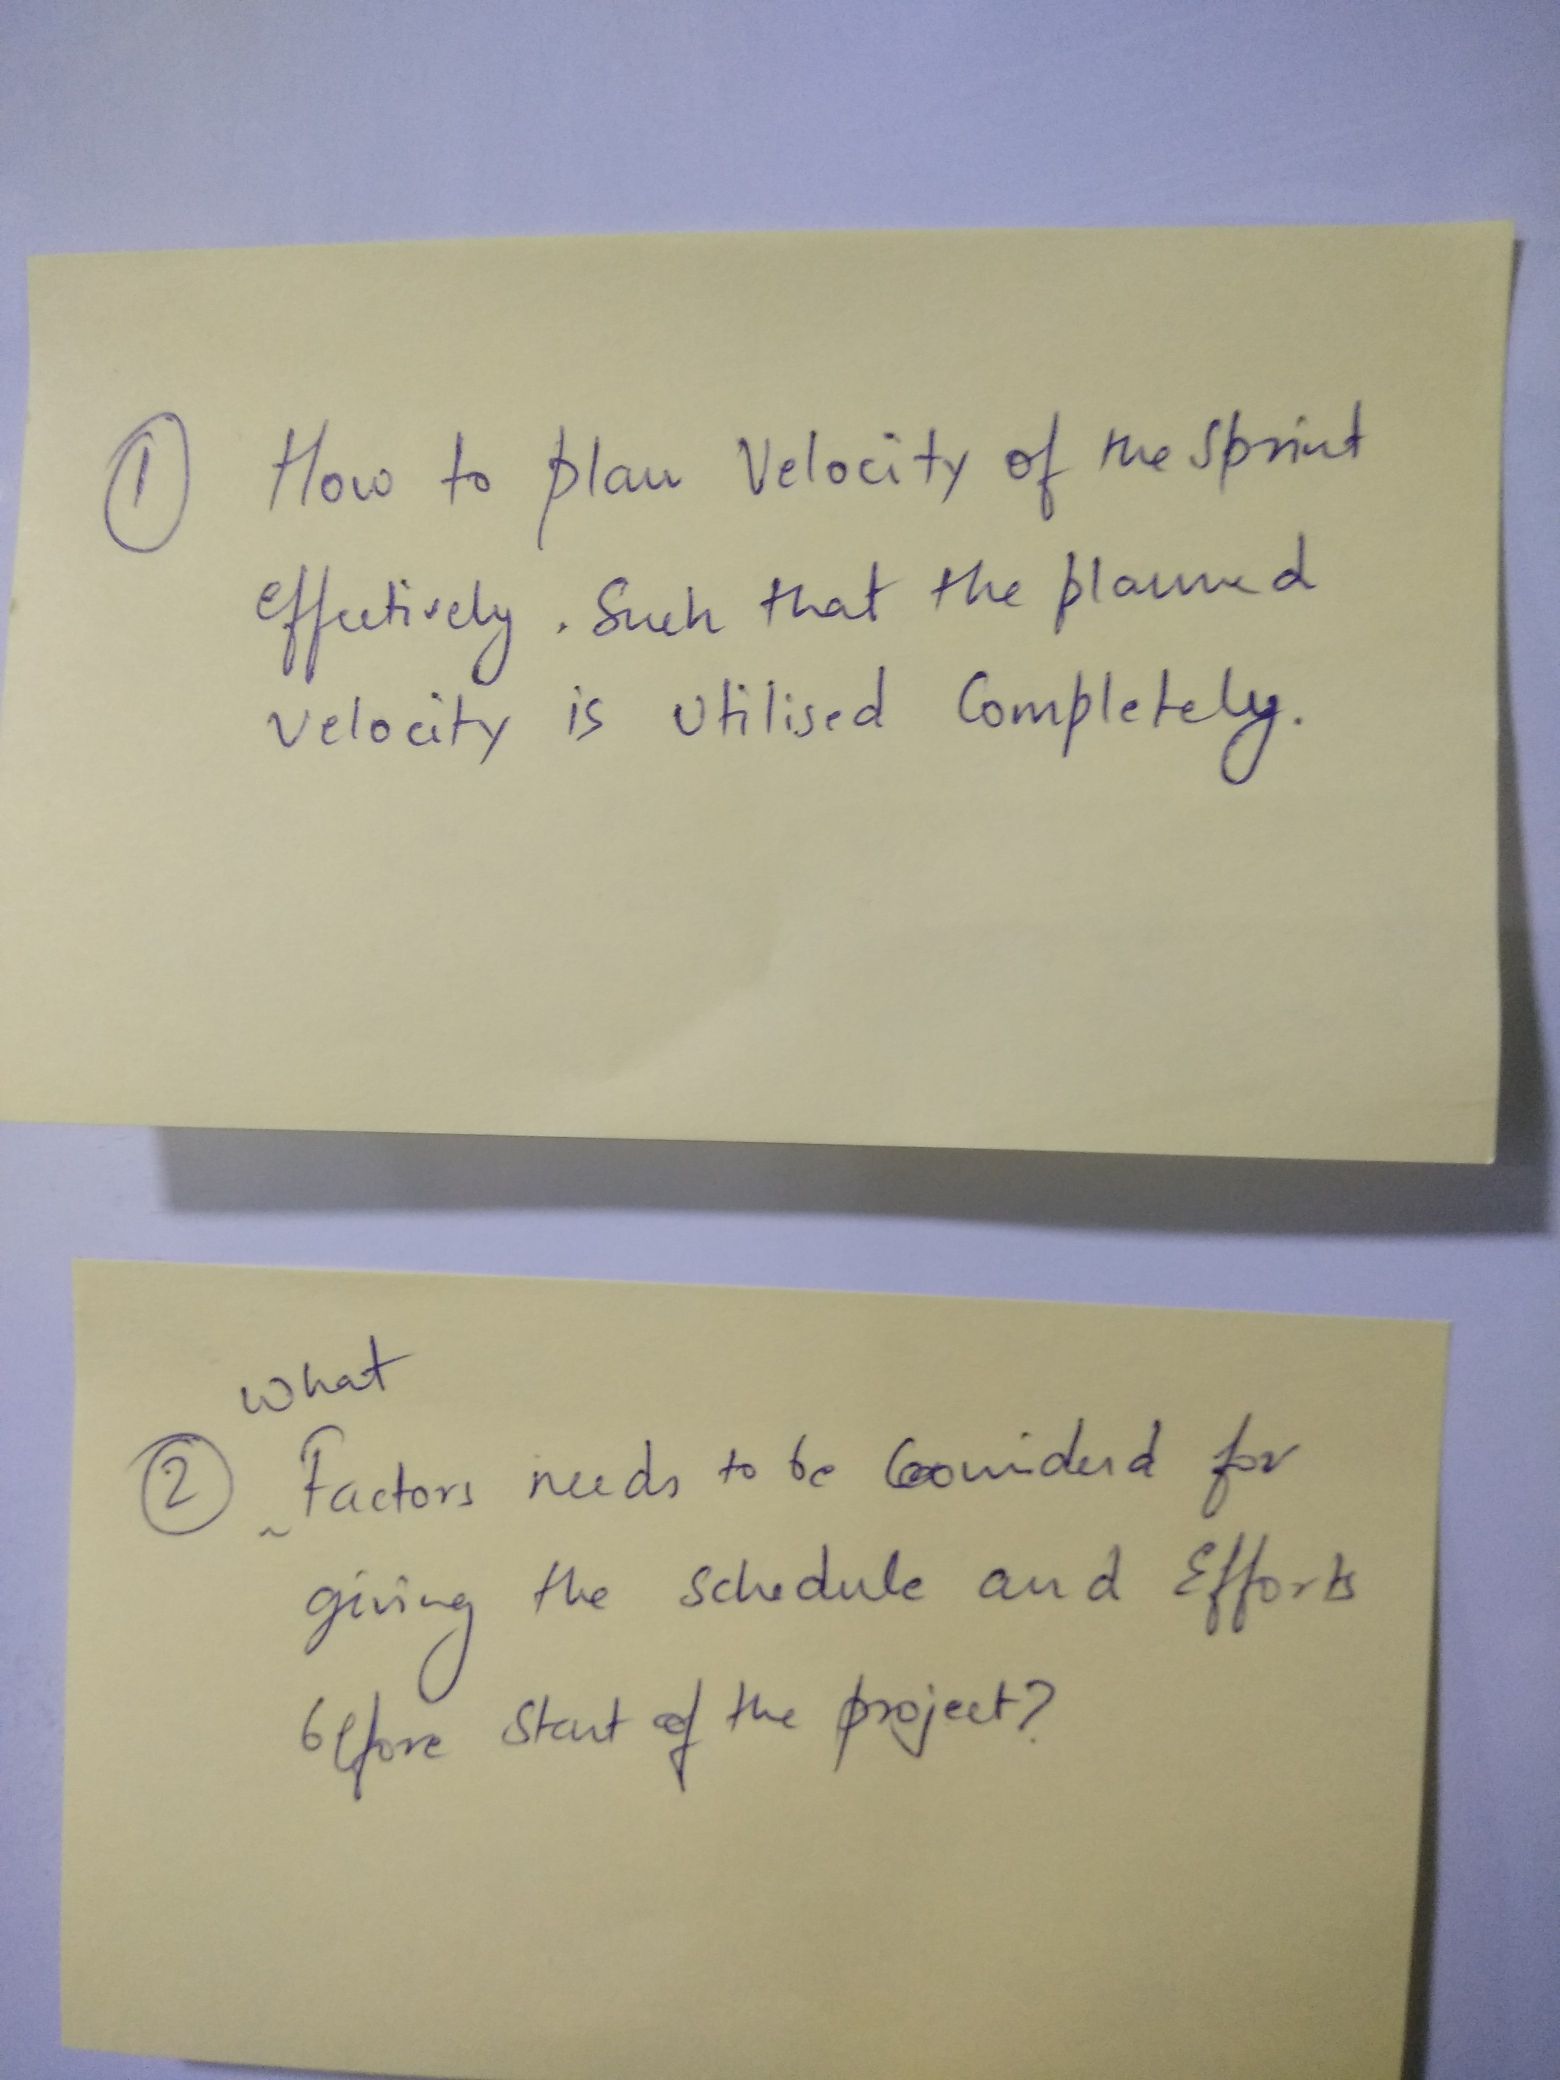 ① How to plan Velocity of the Sprint
effectively. Such that the planned
velocity is utilised Completely.
What
② Factors needs to be Considerd for
giving the schedule and Efforts
before Start of the project?